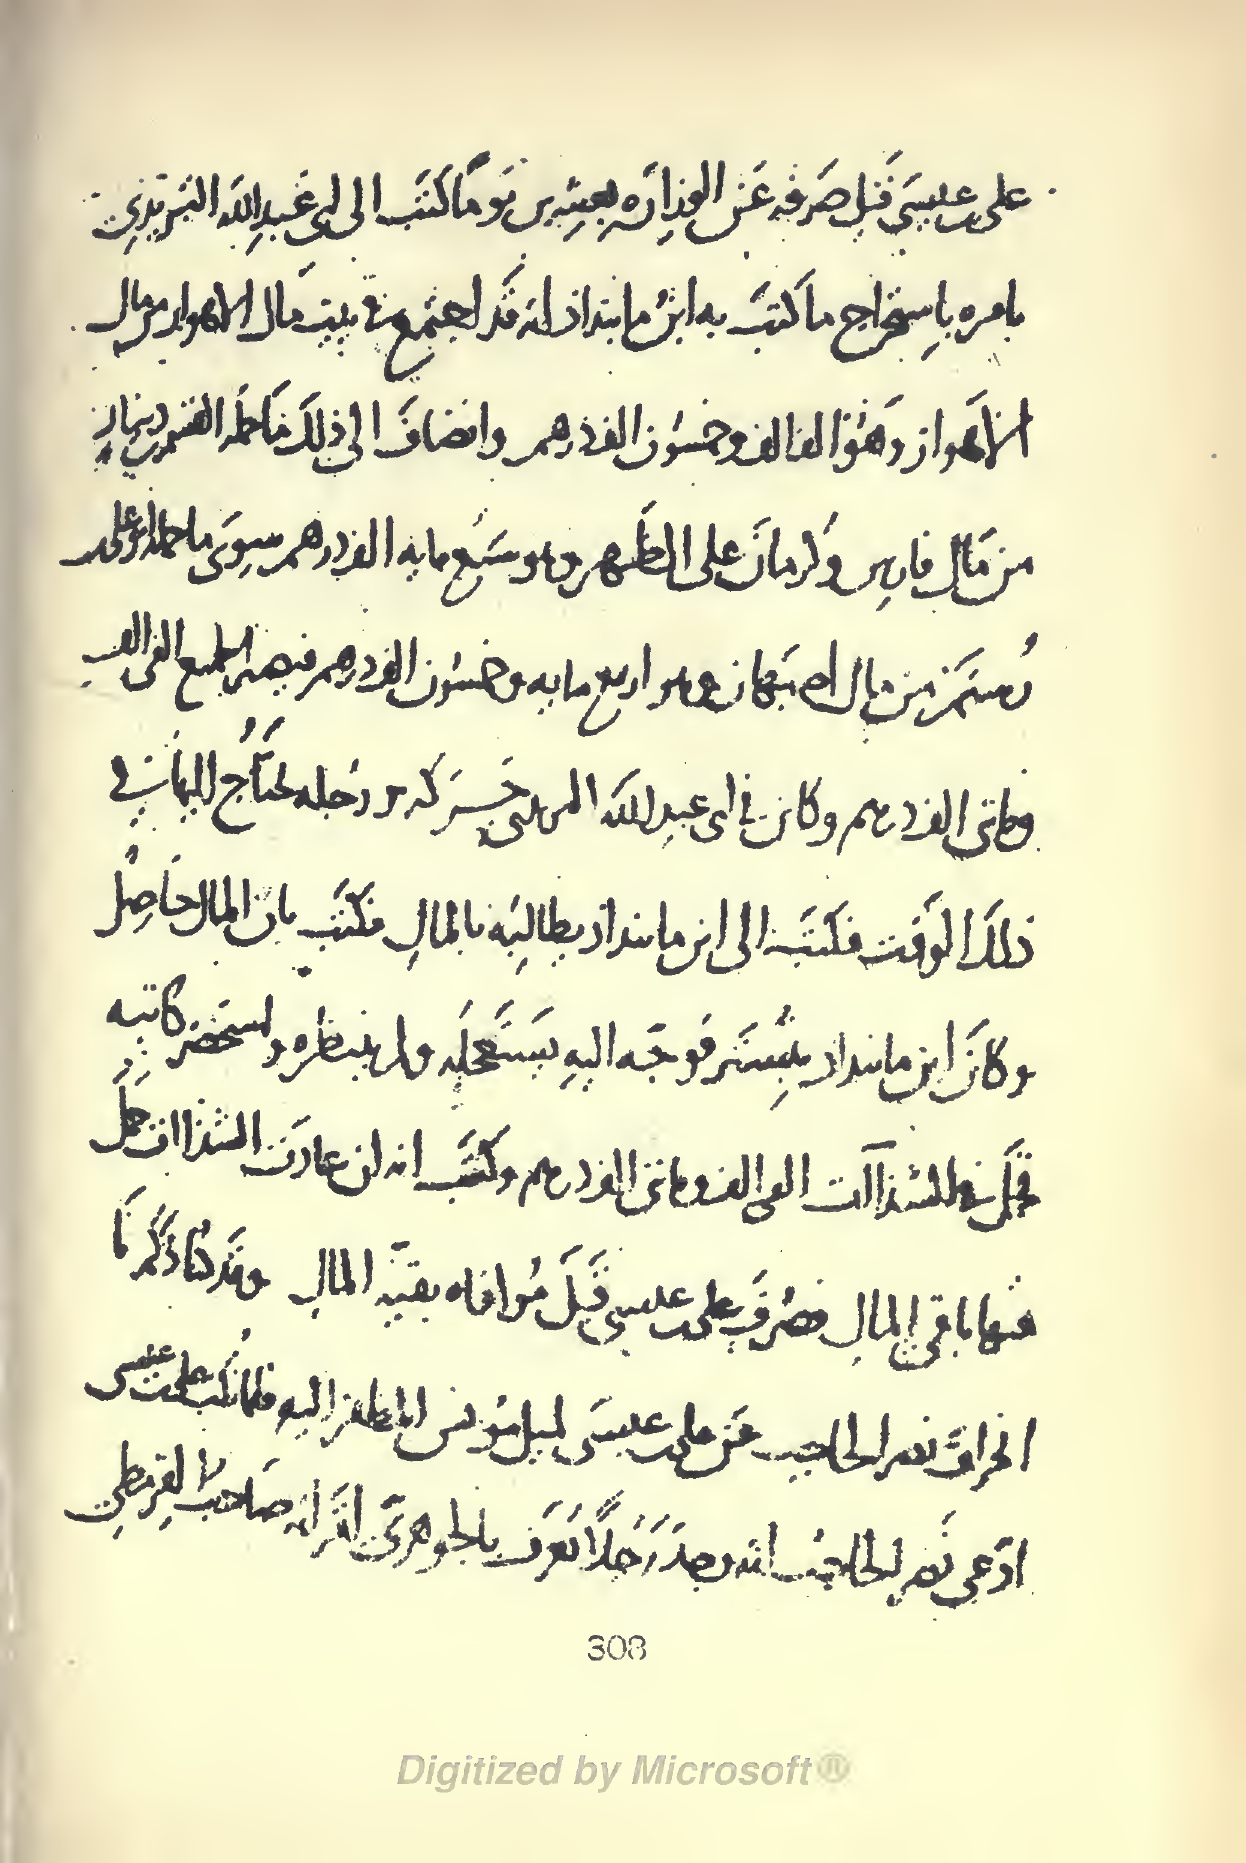 على بن عيسى قبل صرفه عن الوزاره بعشرين يوما كتب الى ابى عبد الله البريدى
يامره باستخراج ما كتب به ابن مابنداذ انه قد اجتمع فى بيت مال الاهواز من مال
الاهواز وهو الف الف وخمسون الف درهم وانضاف الى ذلك ما حمله
من مال فارس وكرمان على الظهر وهو سبع مايه الف درهم سوى ما حمله ابو على بن
رستم من مال اصبهان وهو اربع مايه وخمسون الف درهم فيصير الجميع الفى الف
ومائتى الف درهم وكان فى ابى عبد الله حركه ورجله يحتاج اليها فى
ذلك الوقت فكتب الى ابن مابنداذ يطالبه بالمال فكتب بان المال حاصل
وكان ابن مابنداذ بتستر فوجه اليه يستعجله ولم ينتظره واستحضر كاتبه
فحمل فى الشذاآت الفى الف ومائتى الف درهم وكتب انه ان عادت الشذاات حمل
فيها باقى المال فصرف على بن عيسى قبل موافاه بقيه المال وقد كنا ذكرنا
انحراف نصر الحاجب عن على بن عيسى لميل مونس المظفر اليه فلما نكب على بن عيسى
ادعى نصر الحاجب انه وجد رجلا يعرف بالجوهرى اقر انه صاحب القرمطى
308
Digitized by Microsoft®